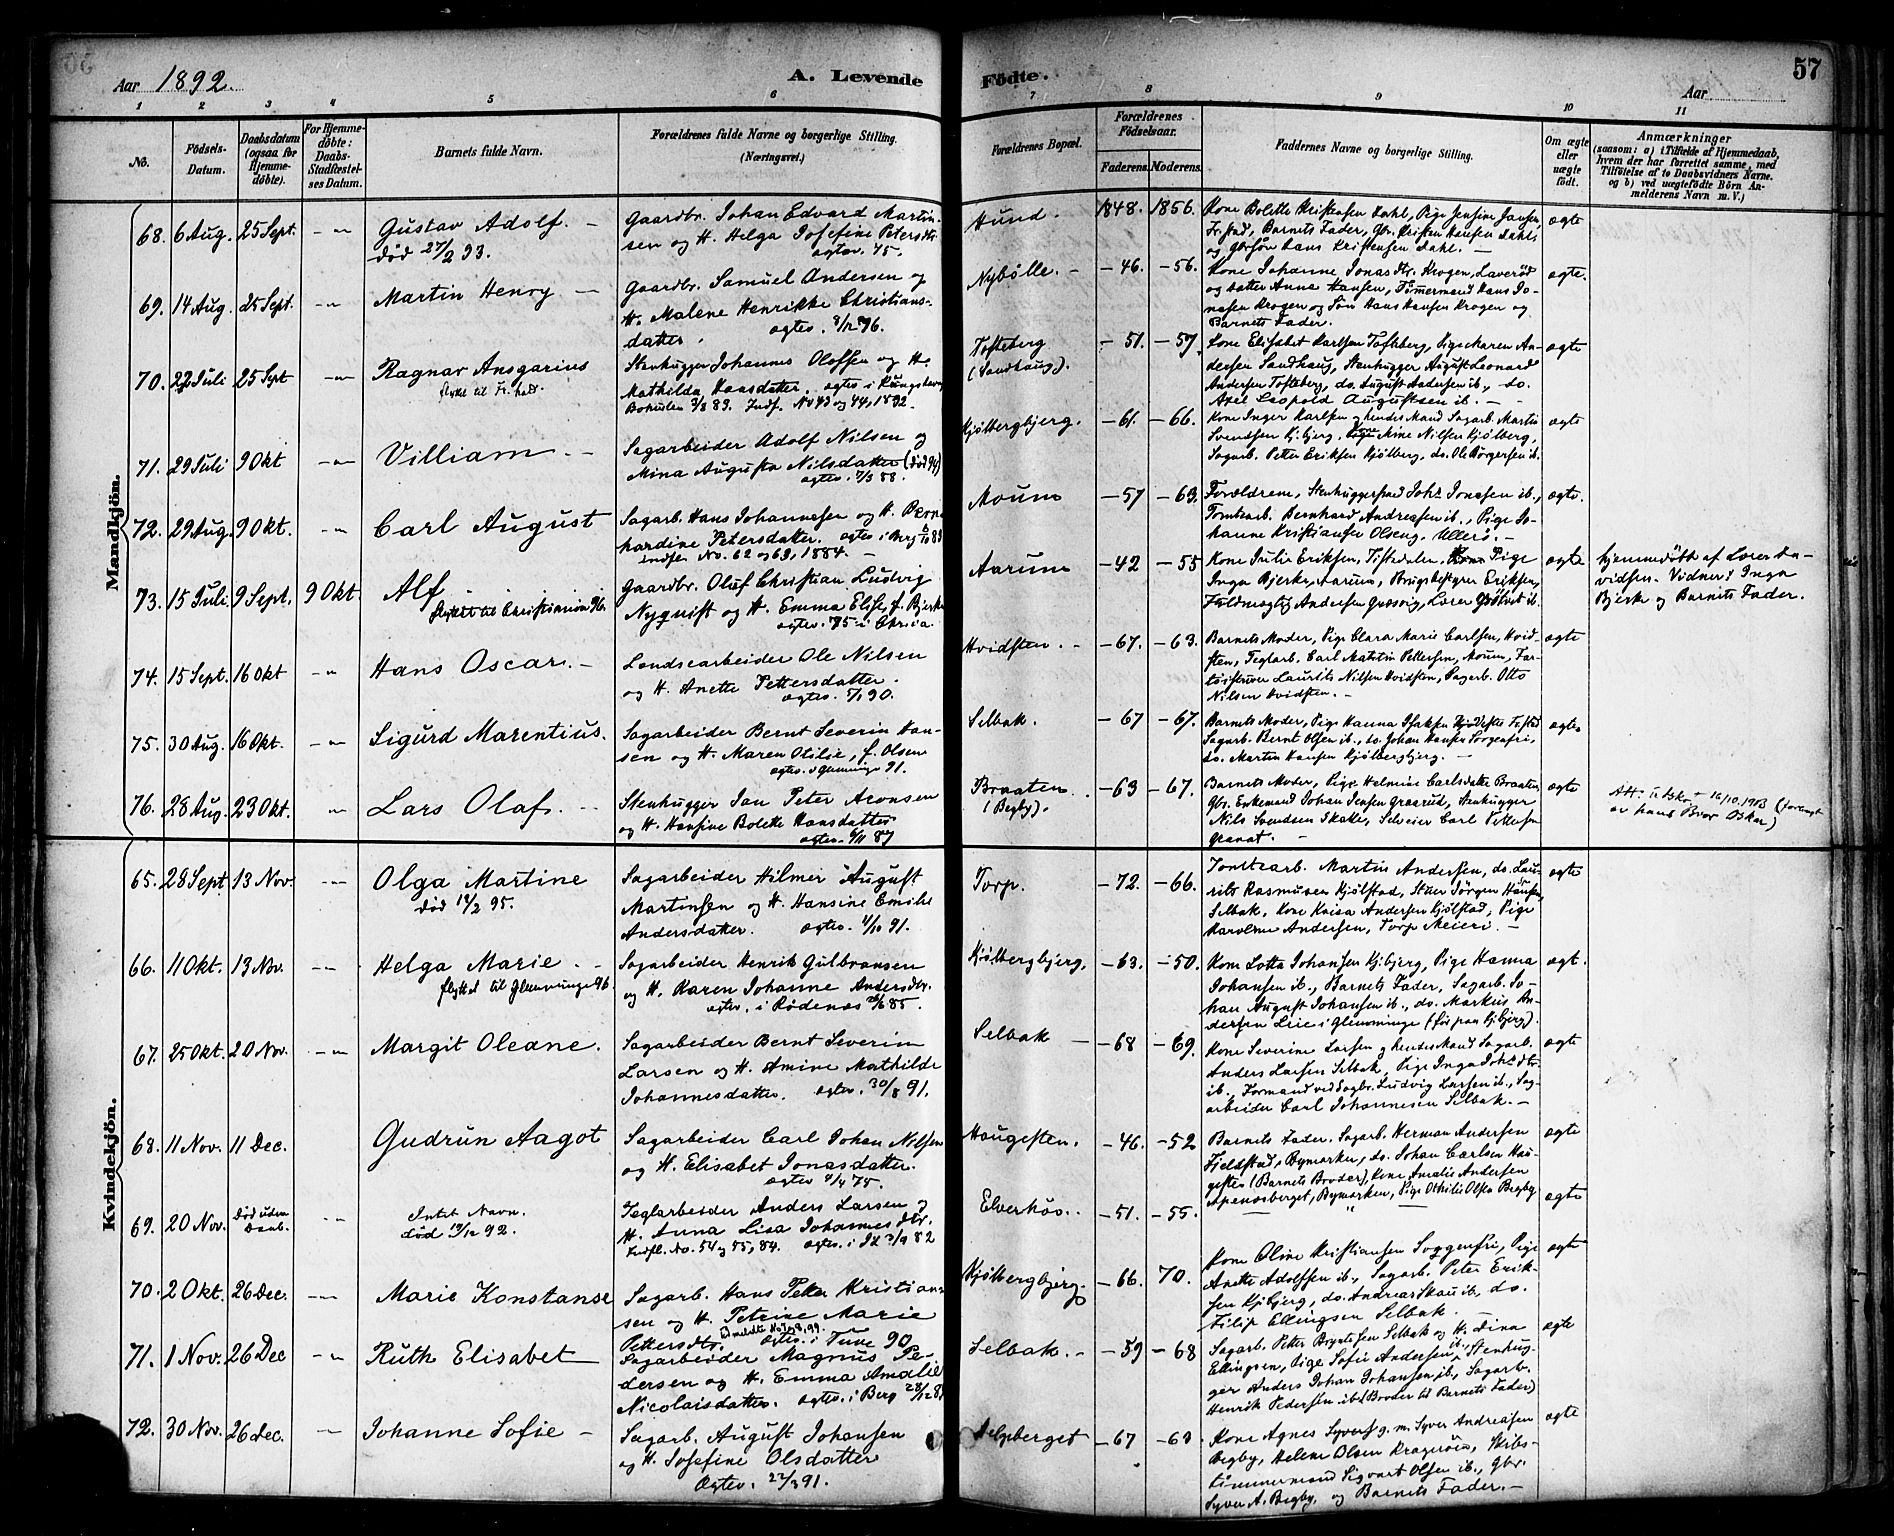 Aar 1892.
A. Levende Födte.
57
Aar
1 2 3 4 5 6 7 8 9 10 11
No.
Födsels-Datum.
Daabsdatum (ogsaa for Hjemme-döbte).
For Hjemme-döbte: Daabs-Stadfæstel-ses Datum.
Barnets fulde Navn.
Forældrenes fulde Navne og borgerlige Stilling.
(Næringsvei.)
Forældrenes Bopæl.
Forældrenes Födselsaar.
Faderens.
Moderens.
Faddernes Navne og borgerlige Stilling.
Om ægte eller uægte födt.
Anmærkninger
(saasom: a) i Tilfælde af Hjemmedaab,
hvem der har forrettet samme, med
Tilföielse af to Daabsvidners Navne.
og b) ved uægtefödte Börn An-
melderens Navn m. V.)
Mandkjön.
68. 6 Aug. 25 Sept. Gustav Adolf.
død 27/2 93.
Gaardbr. Johan Edvard Martin-
sen og H. Helga Josefine Petersdtr
ægtev. 75.
Hund. 1848. 1856.
Kone Bolette Kristensen Dahl, Pige Jensine Jansen,
Fr.stad, Barnets Fader, Gbr. Kristen Hansen Dahl
og Gbrsøn Hans Kristensen Dahl.
ægte
69. 14 Aug. 25 Sept. Martin Henry
Gaardbr. Samuel Andersen og
H. Malene Henrikke Christians-
datter.
Nybölle. 46. 56.
Kone Johanne Jonasdtr. Krogen, Laverød
og datter Anna Hansen, Tømmermand Hans Jo-
nasen Krogen og Søn Hans Hansen Krogen og
Barnets Fader.
ægte.
70. 22 Juli 25 Sept Ragnar Ansgarius
Stenhugger Johannes Oloffen og H.
Mathilda
Bohuslen 3/8 83. Indf. No 43 og 44, 1892.
Tofteberg
(Sandhaug).
51. 57.
Kone Elisabet Karlsen Tofteberg, Pige Karen An-
dersen Sandhaug, Stenhugger August Leonard
Andersen Tofteberg, do. August Andersen ib., do.
Axel Leopold Augustsen ib.
ægte
71. 29 Juli 9 Okt Villiam.
Sagarbeider Adolf Nilsen og
Mina Augusta Nilsdatter (død 94)
ægtev. 7/3 88.
Kjölbergbjerg. 61. 66.
Kone Inger Karlsen og hendes Mand Sagarb. Martin
Svendsen Kj.bjerg, Mine Nilsen Kjölberg,
Sagarb. Peter Eriksen Kjölberg, do. Ole Borgersen ib.
ægte
72. 29 Aug. 9 Okt. Carl August
Sagarb. Hans Johannesen og H. Bern-
hardine Petersdatter. ægtev. i Berg
indfør. No. 62 og 63, 1884.
Moum 57 63.
Forældrene, Stenhugger Joh: Jonasen ib.,
Tomtearb. Bernhard Andreasen ib., Pige Jo-
hanne Kristiansen Olseng, Ullerö.
ægte.
73. 15 Juli 9 Sept. 9 Okt. Alf
flyttet til Christiania 96.
Gaardbr. Oluf Christian Ludvig
Nyquist og H. Emma Elise, f. Bjerke
ægtev. 85 i Chr.ia.
Aarum 42 55
Kone Julie Eriksen, Tistedalen, Pige
Inga Bjerke, Aarum, Brugsbestyrer Eriksen,
Fuldmægtig Andersen Græsvig, Lærer ib.
ægte
Hjemmedöbt af Lærer Da-
vidsen. Vidner: Inga
Bjerke og Barnets Fader.
74. 15 Sept. 16 Okt Hans Oscar.
Landsearbeider Ole Nilsen
og H. Anette Pettersdatter.
ægtev. 5/1 90.
Hvidsten. 67. 63.
Barnets Moder, Pige Clara Marie Carlsen, Hvid-
sten, Teglarb. Carl Mathin Pettersen, Moum, Far-
töisfører Laurits Nilsen Hvidsten, Sagarb. Otto
Nilsen Hvidsten.
ægte
75. 30 Aug. 16 Okt. Sigurd Marentius.
Sagarbeider Bernt Severin Han-
sen og H. Maren Otilie, f. Olsen
ægtev. i Glemminge 91.
Selbak. 67 67.
Barnets Moder, Pige Hanna Isaksen Fr.stad
Sagarb. Bernt Olsen ib., do. Johan Hansen Sorgenfri,
do. Martin Hansen Kjölbergbjerg.
ægte.
76. 28 Aug. 23 Okt. Lars Olaf.
Stenhugger Jan Peter Aronsen
og H. Hansine Bolette Hansdatter
ægtev. 6/11 87
Braaten
(Begby).
63 67.
Barnets Moder, Pige Helmine Carlsdatter Braaten,
Gbr. Enkemand Johan Jensen Graarud, Stenhugger
Nils Svendsen Skatte, Selveier Carl Pettersen
Granat.
ægte
Att. 16/10 1913 (forlangt
av hans Bror Oskar)
Kvindekjön.
65. 28 Sept 13 Nov. Olga Martine
død 18/2 95.
Sagarbeider Hilmer August
Martinsen og H. Hansine Emilie
Andersdatter. ægtev. 11/10 91.
Torp. 72. 66.
Tomtearb. Martin Andersen, do. Lau-
rits Rasmussen Kjölstad, Stuer Jörgen Hansen,
Selbak, Kone Kaisa Andersen Kjölstad, Pige
Karoline Andersen, Torp Meieri.
ægte
66. 11 Okt. 13 Nov. Helga Marie
flyttet til Glemminge 96.
Sagarbeider Henrik Gulbransen
og H. Karen Johanne Andersdtr.
ægtev. i Rödenæs 26/6 85.
Kjölbergbjerg. 63. 50.
Kone Lotta Johansen Kj.bjerg, Pige Hanna
Johansen ib., Barnets Fader, Sagarb. Jo-
han August Johansen ib., do. Markus An-
dersen Leie i Glemminge (för paa Kj.bjerg).
ægt.
67. 25 Okt. 20 Nov. Margit Oleane.
Sagarbeider Bernt Severin
Larsen og H. Amine Mathilde
Johannesdatter. ægtev. 30/8 91.
Selbak 68 69.
Kone Severine Larsen og hendes Mand Sagarb.
Anders Larsen Selbak, Pige Inga Joh:dtr
ib., Formand ved Sagbr. Ludvig Larsen ib., Sag-
arbeider Carl Johannesen Selbak.
ægte
68. 11 Nov. 11 Dec. Gudrun Aagot
Sagarbeider Carl Johan Nilsen
og H. Elisabet Jonasdatter.
Haugesten. 46. 52
Barnets Fader, Sagarb. Herman Andersen
Fjeldstad, Bymarken, do. Johan Carlsen Hau-
gesten (Barnets Broder), Kone Amalie Andersen
Apenæsberget, Bymarken, Pige Othilie Olsen Begby
ægte
69. 20 Nov. Död uden Daab. Intet Navn.
död 19/12 92.
Teglarbeider Anders Larsen og
H. Anna Lisa Johannesdtr.
Indfl. No. 54 og 55, 84.
Elverhöi. 51. 55.
ægte
70. 2 Okt. 26 Dec. Marie Konstanse
Sagarb. Hans Peter Kristian-
sen og H. Petrine Marie
Pettersdtr. ægtev. i Tune 90
Kjölbergbjerg. 66. 70.
Kone Oline Kristiansen Soggenfri, Pige
Anette Adolfsen ib., Sagarb. Peter Erik-
sen Kj.bjerg, do. Andreas Skau ib., do.
Filip Ellingsen Selbak.
ægte
71. 1 Nov. 26 Dec Ruth Elisabet
Sagarbeider Magnus Pe-
dersen og H. Emma Amalie
Nicolaisdatter. ægtev. i Berg
Selbak. 59 68
Sagarb. Petter Selbak og H. Dina
Ellingsen, Pige Sofie Andersen ib., Stenhug-
ger Anders Johan Johansen ib., Sagarb.
Henrik Pedersen ib. (Broder til Barnets Fader)
ægte
72. 30 Nov. 26 Dec. Johanne Sofie
Sagarb. August Johansen
og H. Josefine Olsdatter
Ægtev. 22/3 91.
67 63
Kone Agnes Syvers g. m. Syver Andreasen
Begby, Helene Olsen Kragerøen, Skibs-
tömmermand Sigvart Olsen ib., Gbr.
Syver A. Begby og Barnets Fader.
ægte